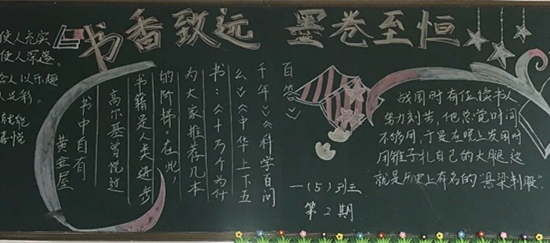 书香致远 墨卷至恒
使人充实
使人深邃
给人以乐趣
人光彩
就能
喜悦
书中自有
黄金屋
高尔基曾说过
书籍是人类进步
的阶梯。在此,
为大家推荐几本
书:《十万个为什
么》《中华上下五
千年》《科学百问
百答》
战国时有位读书人
努力刻苦,他总觉时间
不够用,于是在晚上发困时
用锥子扎自己的大腿,这
就是历史上有名的"悬梁刺股"。
一(5)班
第2期